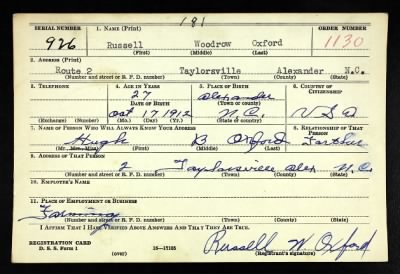 181
SERIAL NUMBER 1. NAME (Print) ORDER NUMBER
926 Russell Woodrow Oxford 1130
(First) (Middle) (Last)
2. ADDRESS (Print)
Route 2 Taylorsville Alexander N.C.
(Number and street or R. F. D. number) (Town) (County) (State)
3. TELEPHONE 4. AGE IN YEARS 5. PLACE OF BIRTH 6. COUNTRY OF CITIZENSHIP
27 Alexander
DATE OF BIRTH (Town or county)
Oct 17 1912 N.C. U S A
(Exchange) (Number) (Mo.) (Day) (Yr.) (State or country)
7. NAME OF PERSON WHO WILL ALWAYS KNOW YOUR ADDRESS 8. RELATIONSHIP OF THAT PERSON
Hugh B Oxford Farther
(Mr., Mrs., Miss) (First) (Middle) (Last)
9. ADDRESS OF THAT PERSON
2 Taylorsville Alex N.C.
(Number and street or R. F. D. number) (Town) (County) (State)
10. EMPLOYER'S NAME
11. PLACE OF EMPLOYMENT OR BUSINESS
Farming
(Number and street or R. F. D. number) (Town) (County) (State)
I AFFIRM THAT I HAVE VERIFIED ABOVE ANSWERS AND THAT THEY ARE TRUE.
REGISTRATION CARD
D. S. S. Form 1 16-17105 Russell W Oxford
(Registrant's signature)